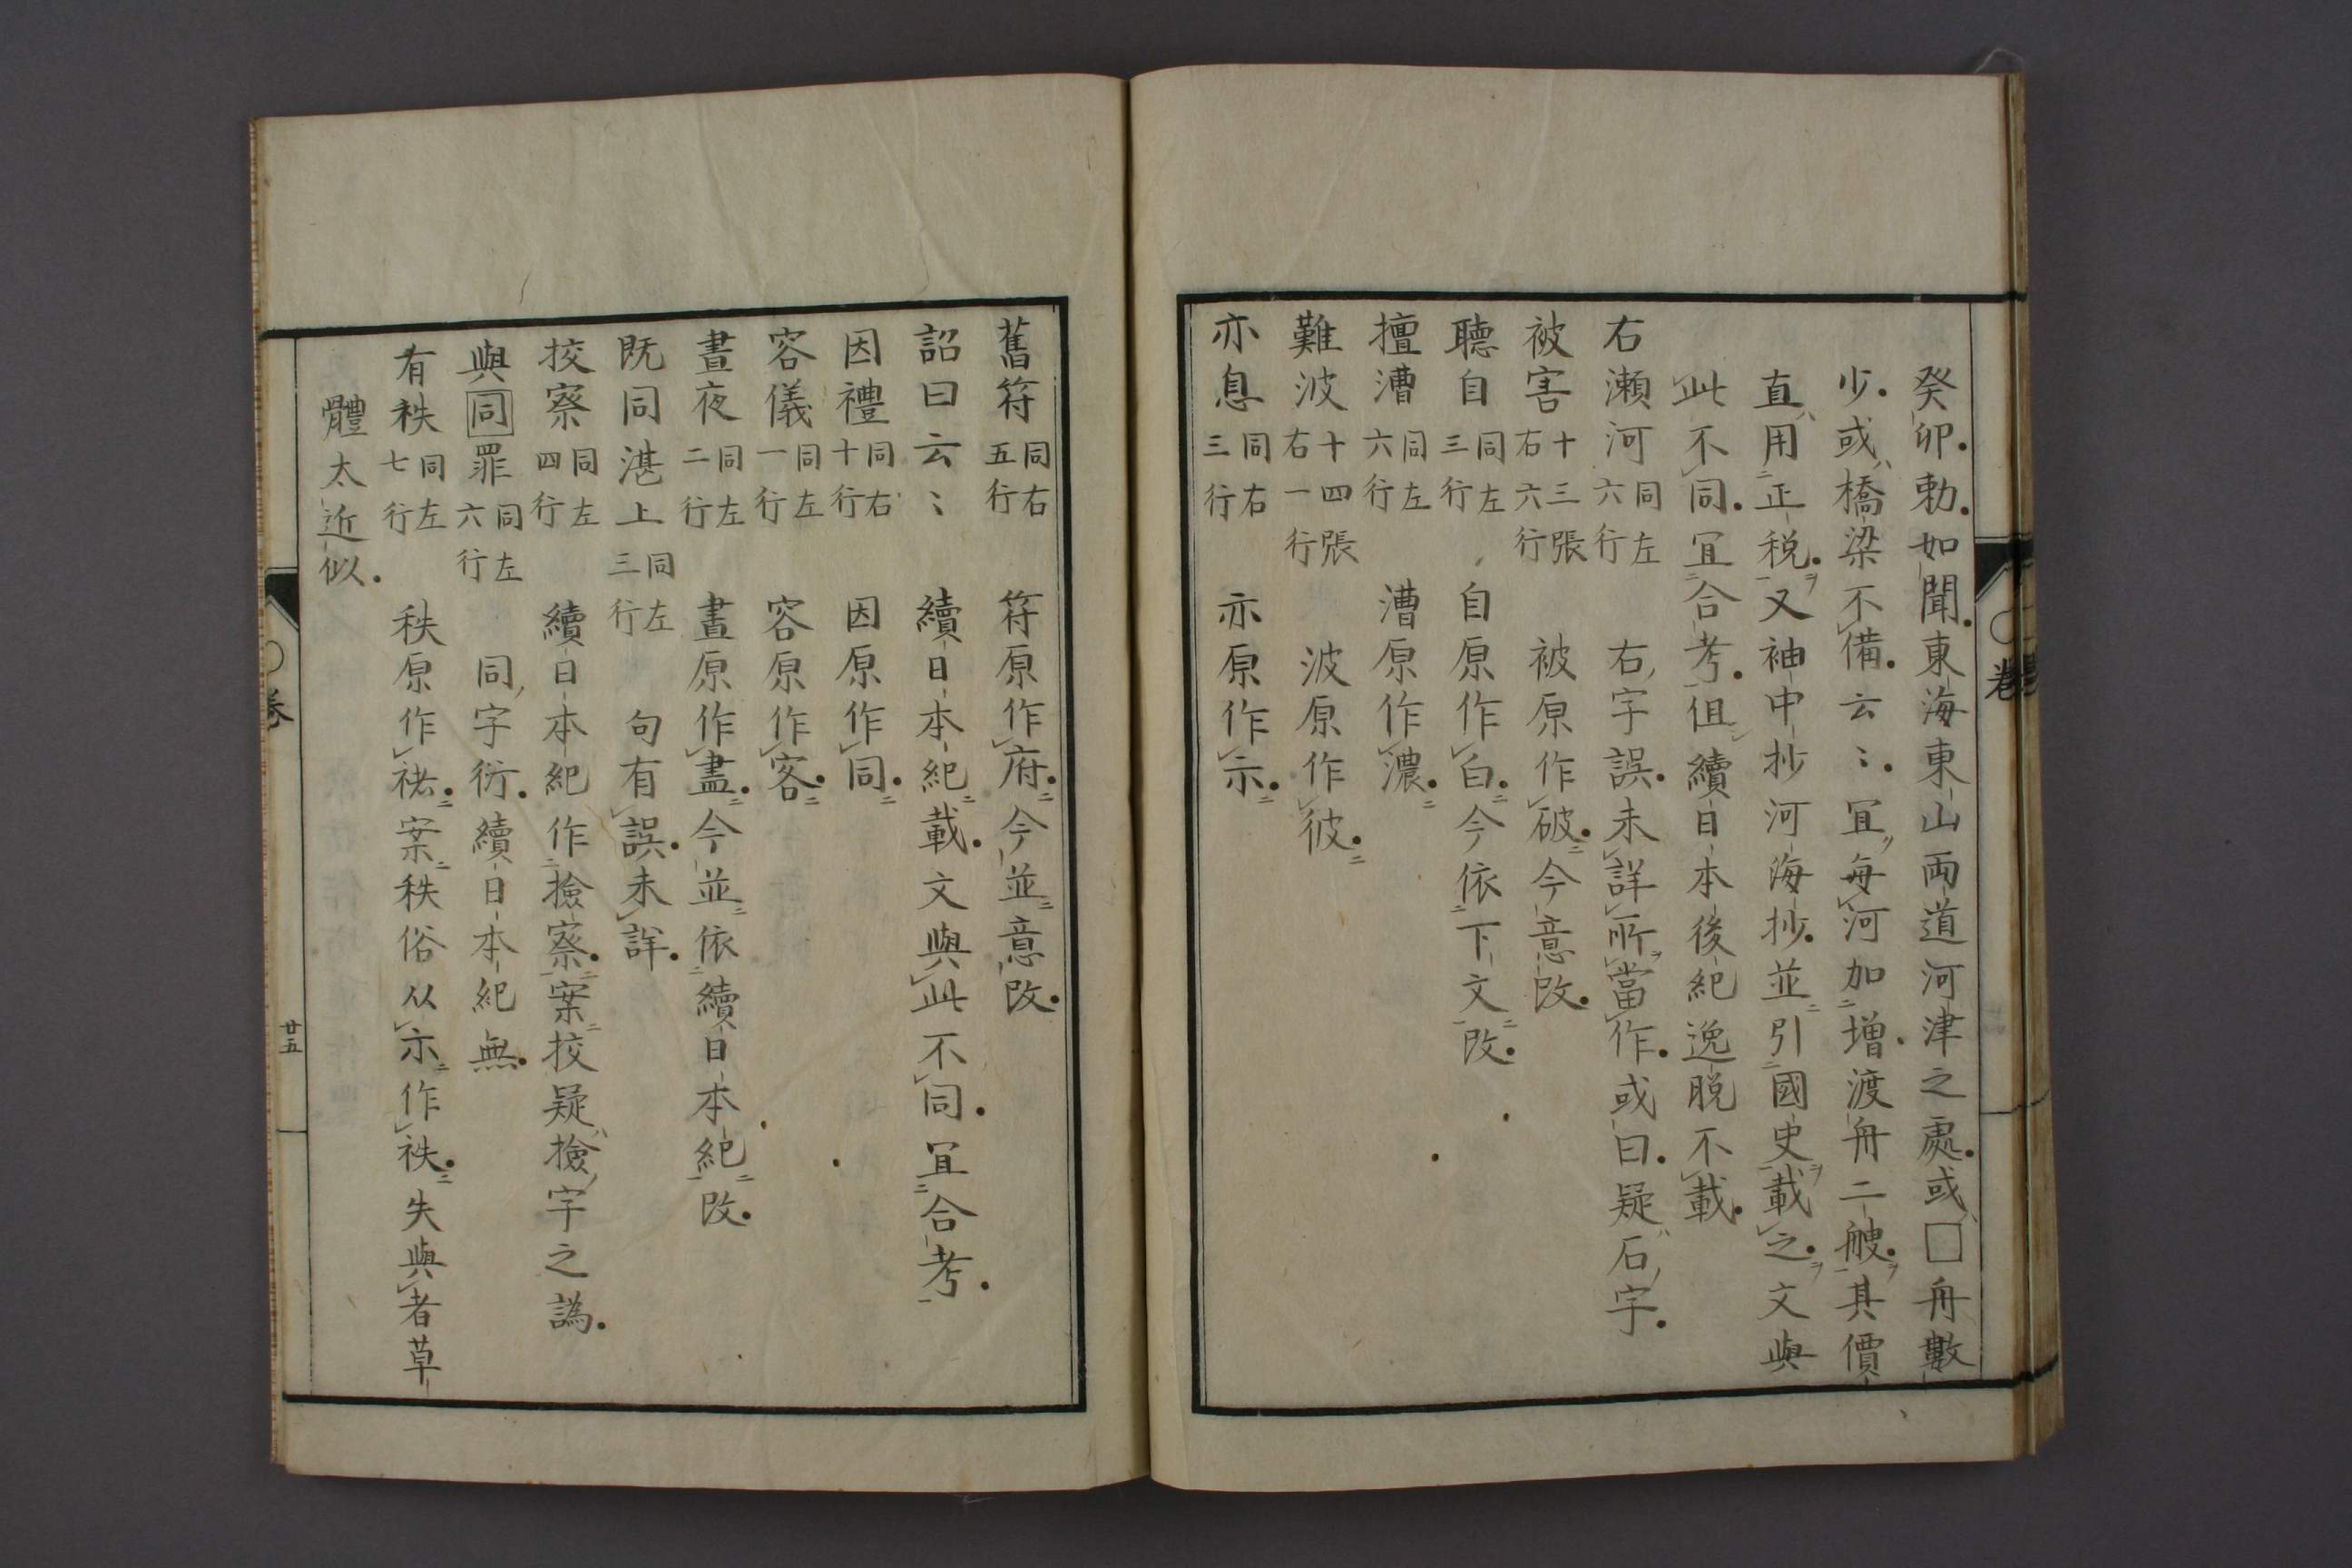 癸卯勅如聞東海東山両道河津之處或□舟數
少或橋梁不備云〻冝每河加增渡舟二艘其價
直用正税又袖中抄河海抄並引國史載之文與
此不同冝合考伹續日本後紀逸脱不載
右瀬河同左六行 右字誤未詳所當作或曰疑石字
被害十三張右六行 被原作破今意改
聴自同左三行 自原作白今依下文改
擅漕同左六行 漕原作濃
難波十四張右一行 波原作彼
亦息同右三行 亦原作示
舊符同右五行 符原作府今並意改
詔曰云〻 續日本紀載文與此不同冝合考
因禮同右十行 因原作同
容儀同左一行 容原作客
晝夜同左二行 晝原作盡今並依續日本紀改
既同湛上同左三行 句有誤未詳
挍察同左四行 續日本紀作撿察案挍疑撿字之譌
與同罪同左六行 同字衍續日本紀無
有秩同左七行 秩原作䄍案秩俗从示作袟失與者草
體太近似
卷
廿五